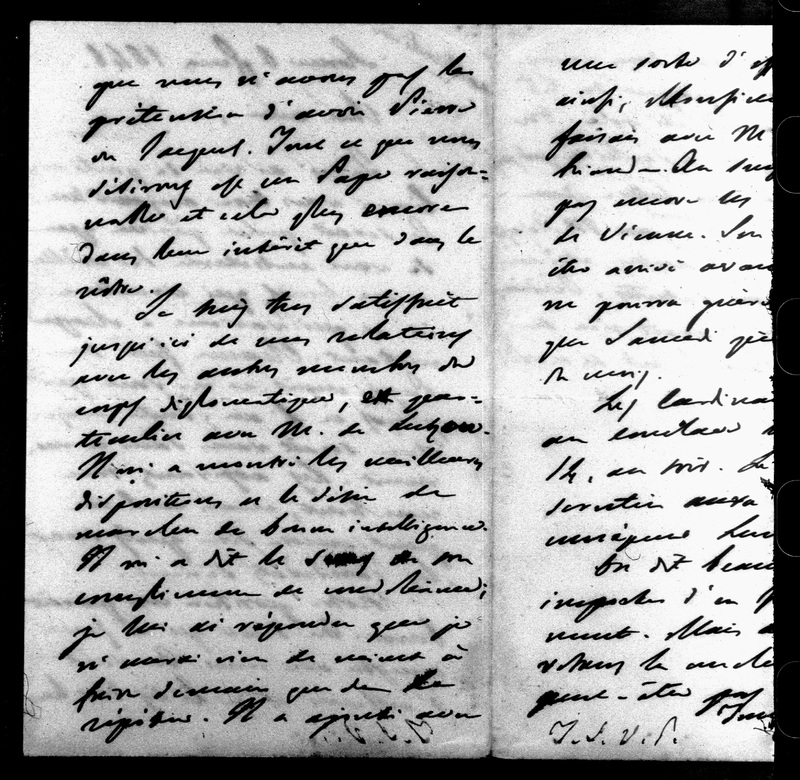 que nous n'avons pas la
prétention d'avoir Pierre
ou Jacques. Tout ce que nous
désirons est un Pape raison=
nable et cela plus encore
dans leur intérêt que dans le
nôtre.
Je suis très satisfait
jusqu'ici de mes relations
avec les autres membres du
corps diplomatique, et par=
ticulier avec M. de
Il m'a montré les meilleures
dispositions et le désir de
marcher de bonne intelligence.
Il m'a dit le de son
compliment de mercredi;
je lui ai répondu que je
n'aurai rien de mieux à
faire demain que de le
répéter. Il a ajouté avec
une sorte d'
ainsi, Monsieur
faisais avec M.
pas encore les
de Vienne. Son
être arrivé avan
ne pourra guère
que Samedi
Les Cardina
au conclave
14, au soir. Le
scrutin aura
On dit beau
ment. Mais
peut-être pas
T. S. V. P.